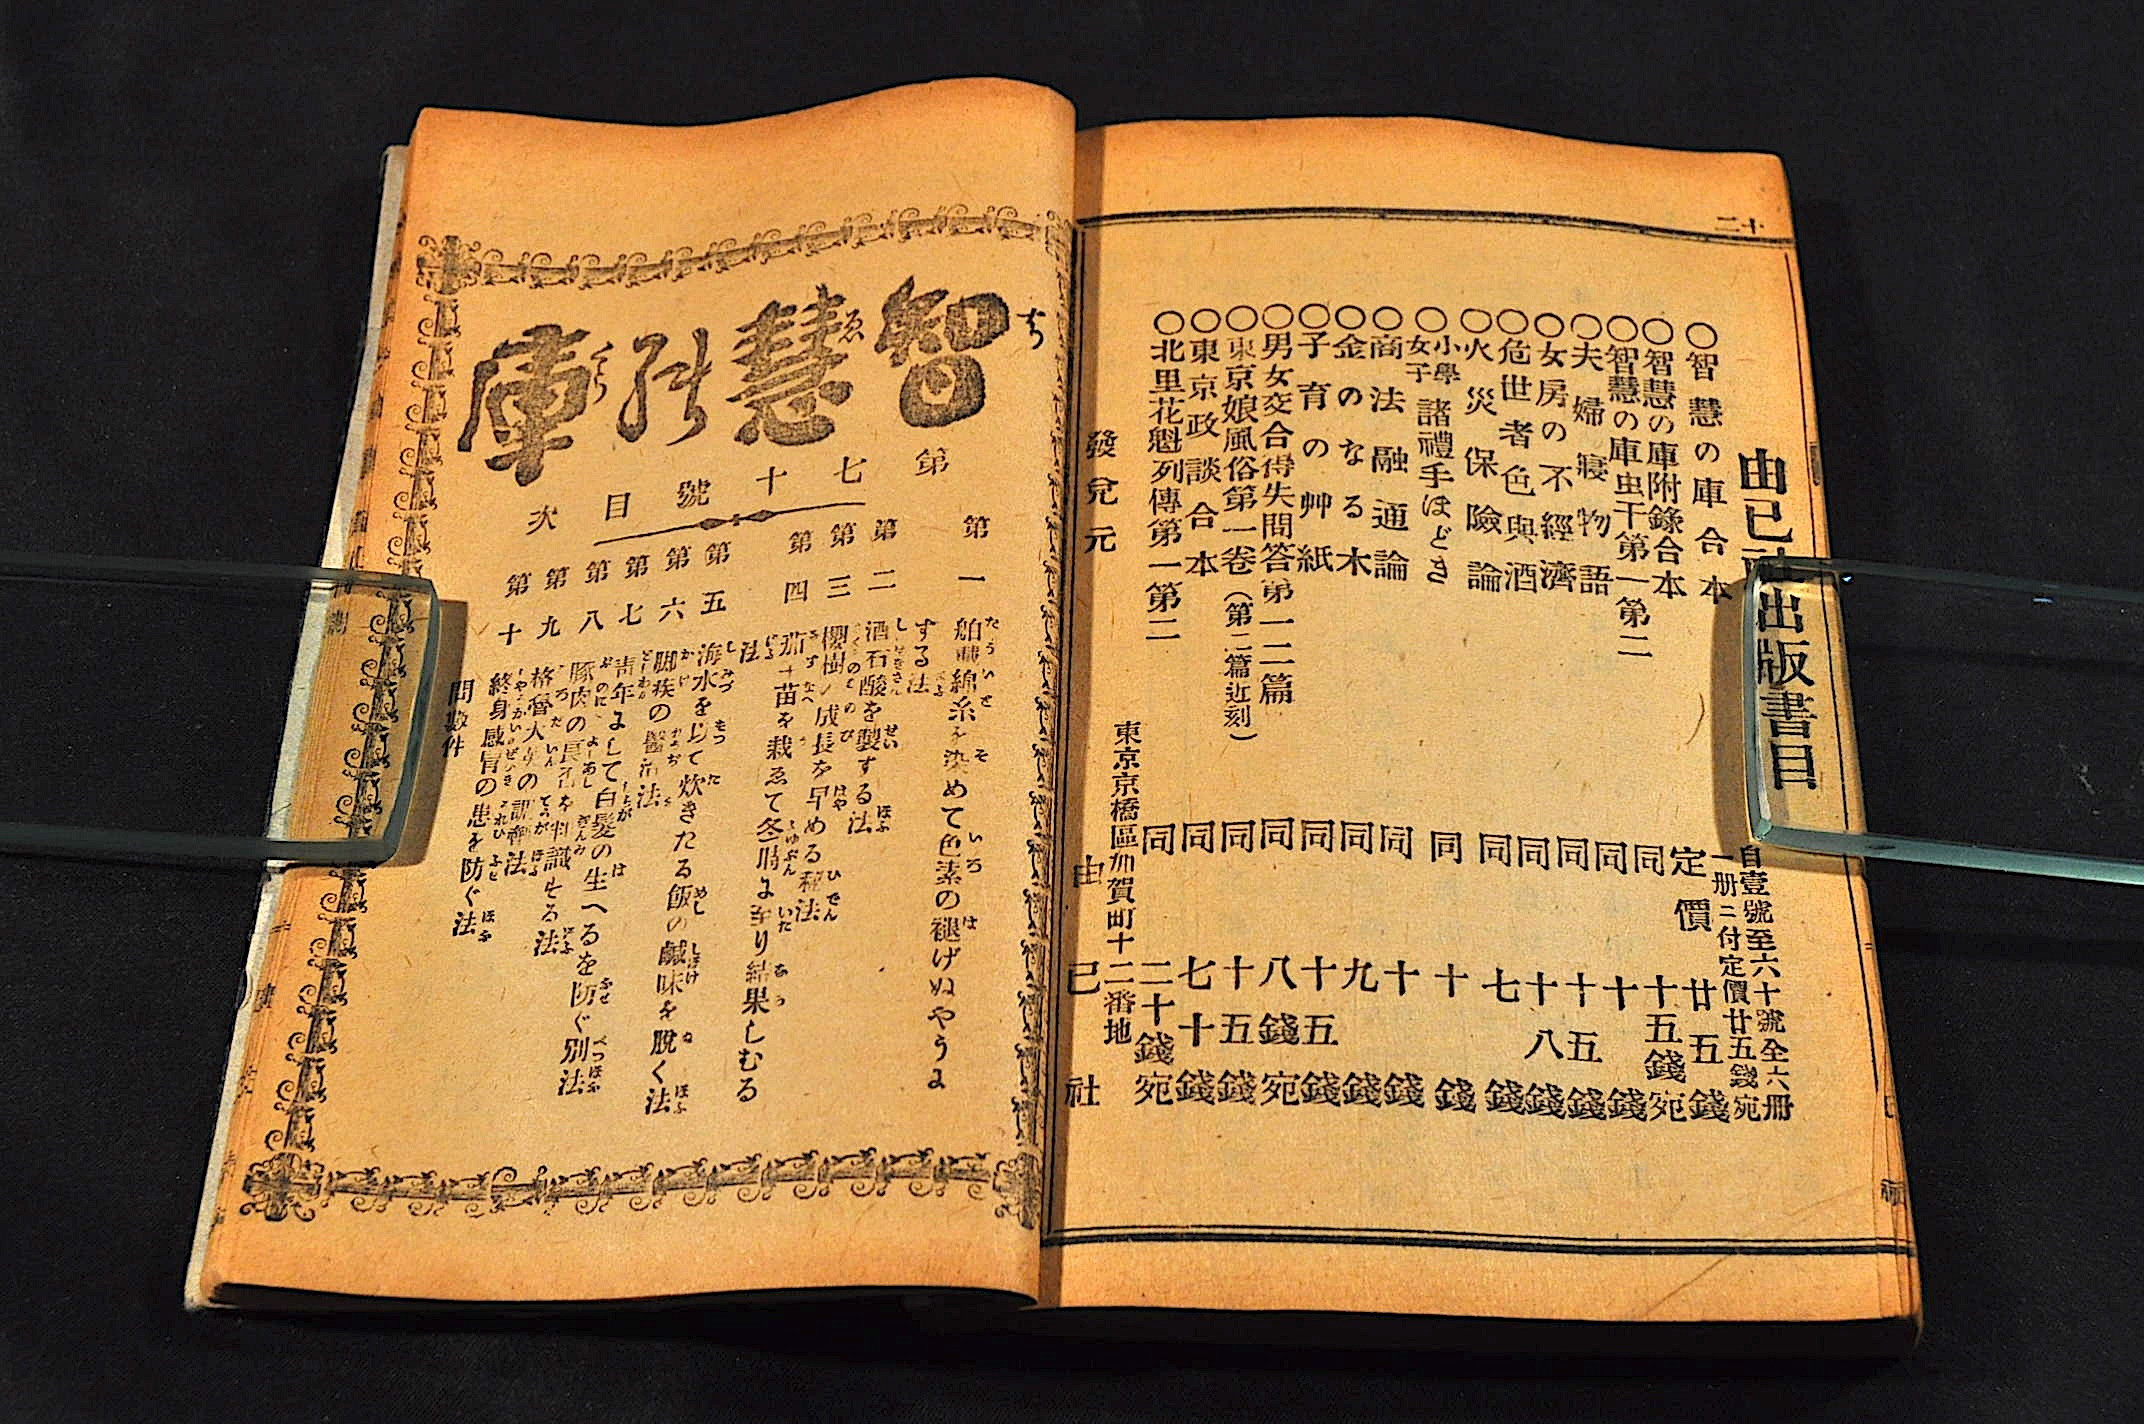 十二
由己社出版書目
自壹號至六十號全六册
一册ニ付定價廿五錢宛
○智慧の庫合本 定價 廿五錢
○智慧の庫附錄合本 同 十五錢宛
○智慧の庫虫干第一第二 同 十錢
○夫婦寢物語 同 十五錢
○女房の不經濟 同 十八錢
○危世者色與酒 同 七錢
○火災保險論
○小學女子諸禮手ほどき 同 十錢
○商法融通論 同 十錢
○金のなる木 同 九錢
○子育の艸紙 同 十五錢
○男女交合得失問答第一二篇 同 八錢宛
○東京娘風俗第一卷(第二篇近刻) 同 十五錢
○東京政談合本 同 七十錢
○北里花魁列傳第一第二 同 二十錢宛
東京京橋區加賀町十二番地
發兌元 由己社
智慧の庫
第七十號目次
第一 舶載綿糸を染めて色素の褪げぬやうに
する法
第二 酒石酸を製する法
第三 櫻樹の成長を早める秘法
第四 茄子苗を栽ゑて冬時に至り結果しむる
法
第五 海水を以て炊きたる飯の鹹味を脱く法
第六 脚疾の醫治法
第七 靑年にして白髮の生へるを防ぐ別法
第八 豚肉の眞否を判識する法
第九
第十 終身感冒の患を防ぐ法
問數件